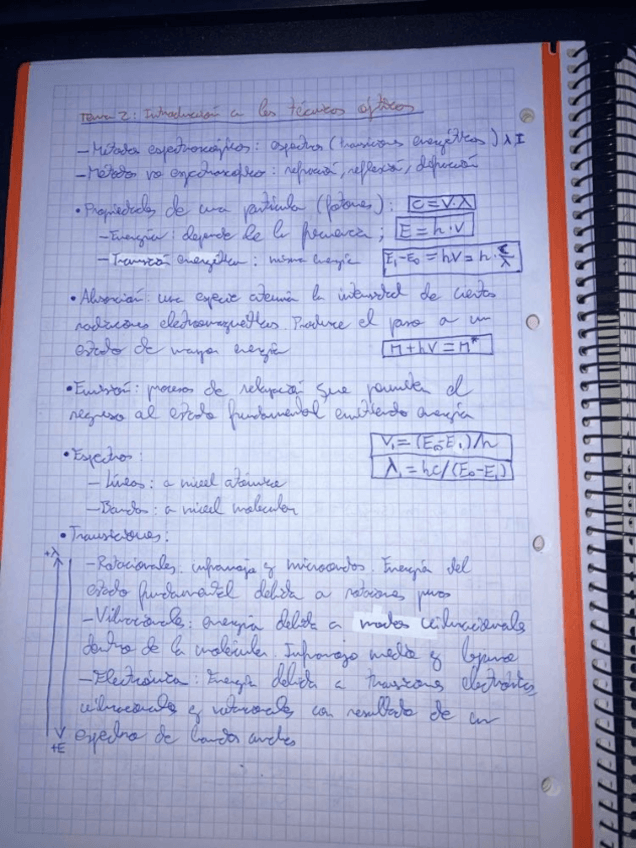 Tema 2: Introducción a las técnicas ópticas
- Métodos espectroscópicos: espectros (transiciones energéticas) λ I
- Métodos no espectroscópicos: refracción, reflexión, dispersión
• Propiedades de una partícula (fotones): C = V·λ
- Energía: depende de la frecuencia; E = h·V
- Transición energética: misma energía E₁-E₀ = hV = h·c/λ
• Absorción: una especie atenúa la intensidad de ciertas
radiaciones electromagnéticas. Produce el paso a un
estado de mayor energía M + hV = M*
• Emisión: proceso de relajación que permite el
regreso al estado fundamental emitiendo energía
• Espectros: V₁ = (E₀-E₁)/h
- Líneas: a nivel atómico λ₁ = hc/(E₀-E₁)
- Bandas: a nivel molecular
• Transiciones:
+λ
- Rotacionales: infrarrojo y microondas. Energía del
estado fundamental debida a rotaciones
- Vibracionales: energía debida a modos vibracionales
dentro de la molécula. Infrarrojo medio y lejano
- Electrónica: Energía debida a transiciones electrónicas
vibracionales y rotacionales con resultado de un
+E espectro de bandas anchas